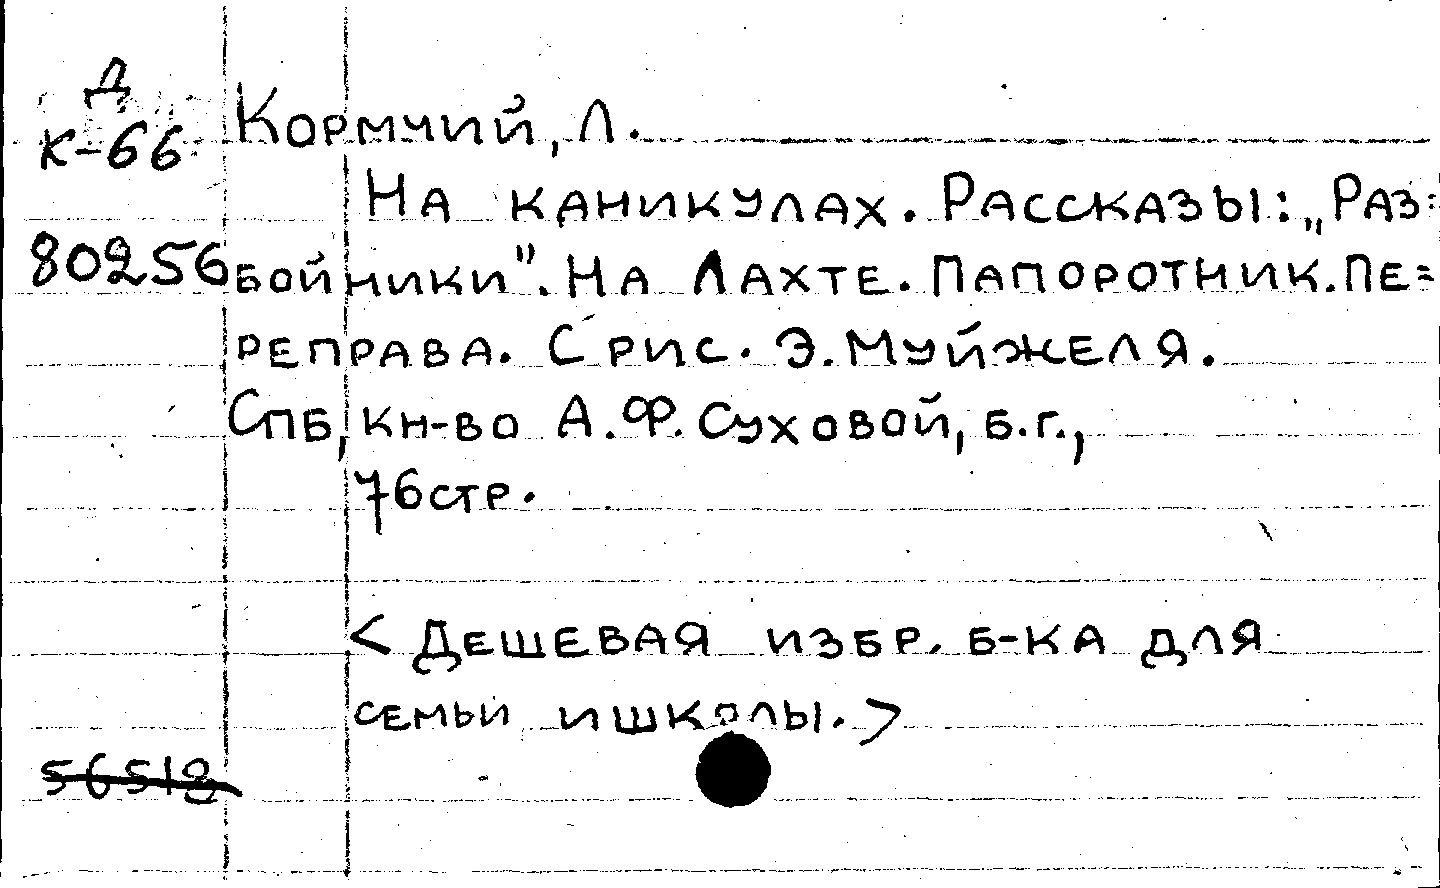 Д
К-66
Кормчий, Л.
На каникулах. Рассказы: „Раз=
80256
бойники". На Лахте. Папоротник. Пе=
реправа. С рис. Э. Муйжеля.
Спб, кн-во А.Ф. Суховой, б.г.,
76стр.
<Дешевая избр. б-ка для
семьи и школы.>